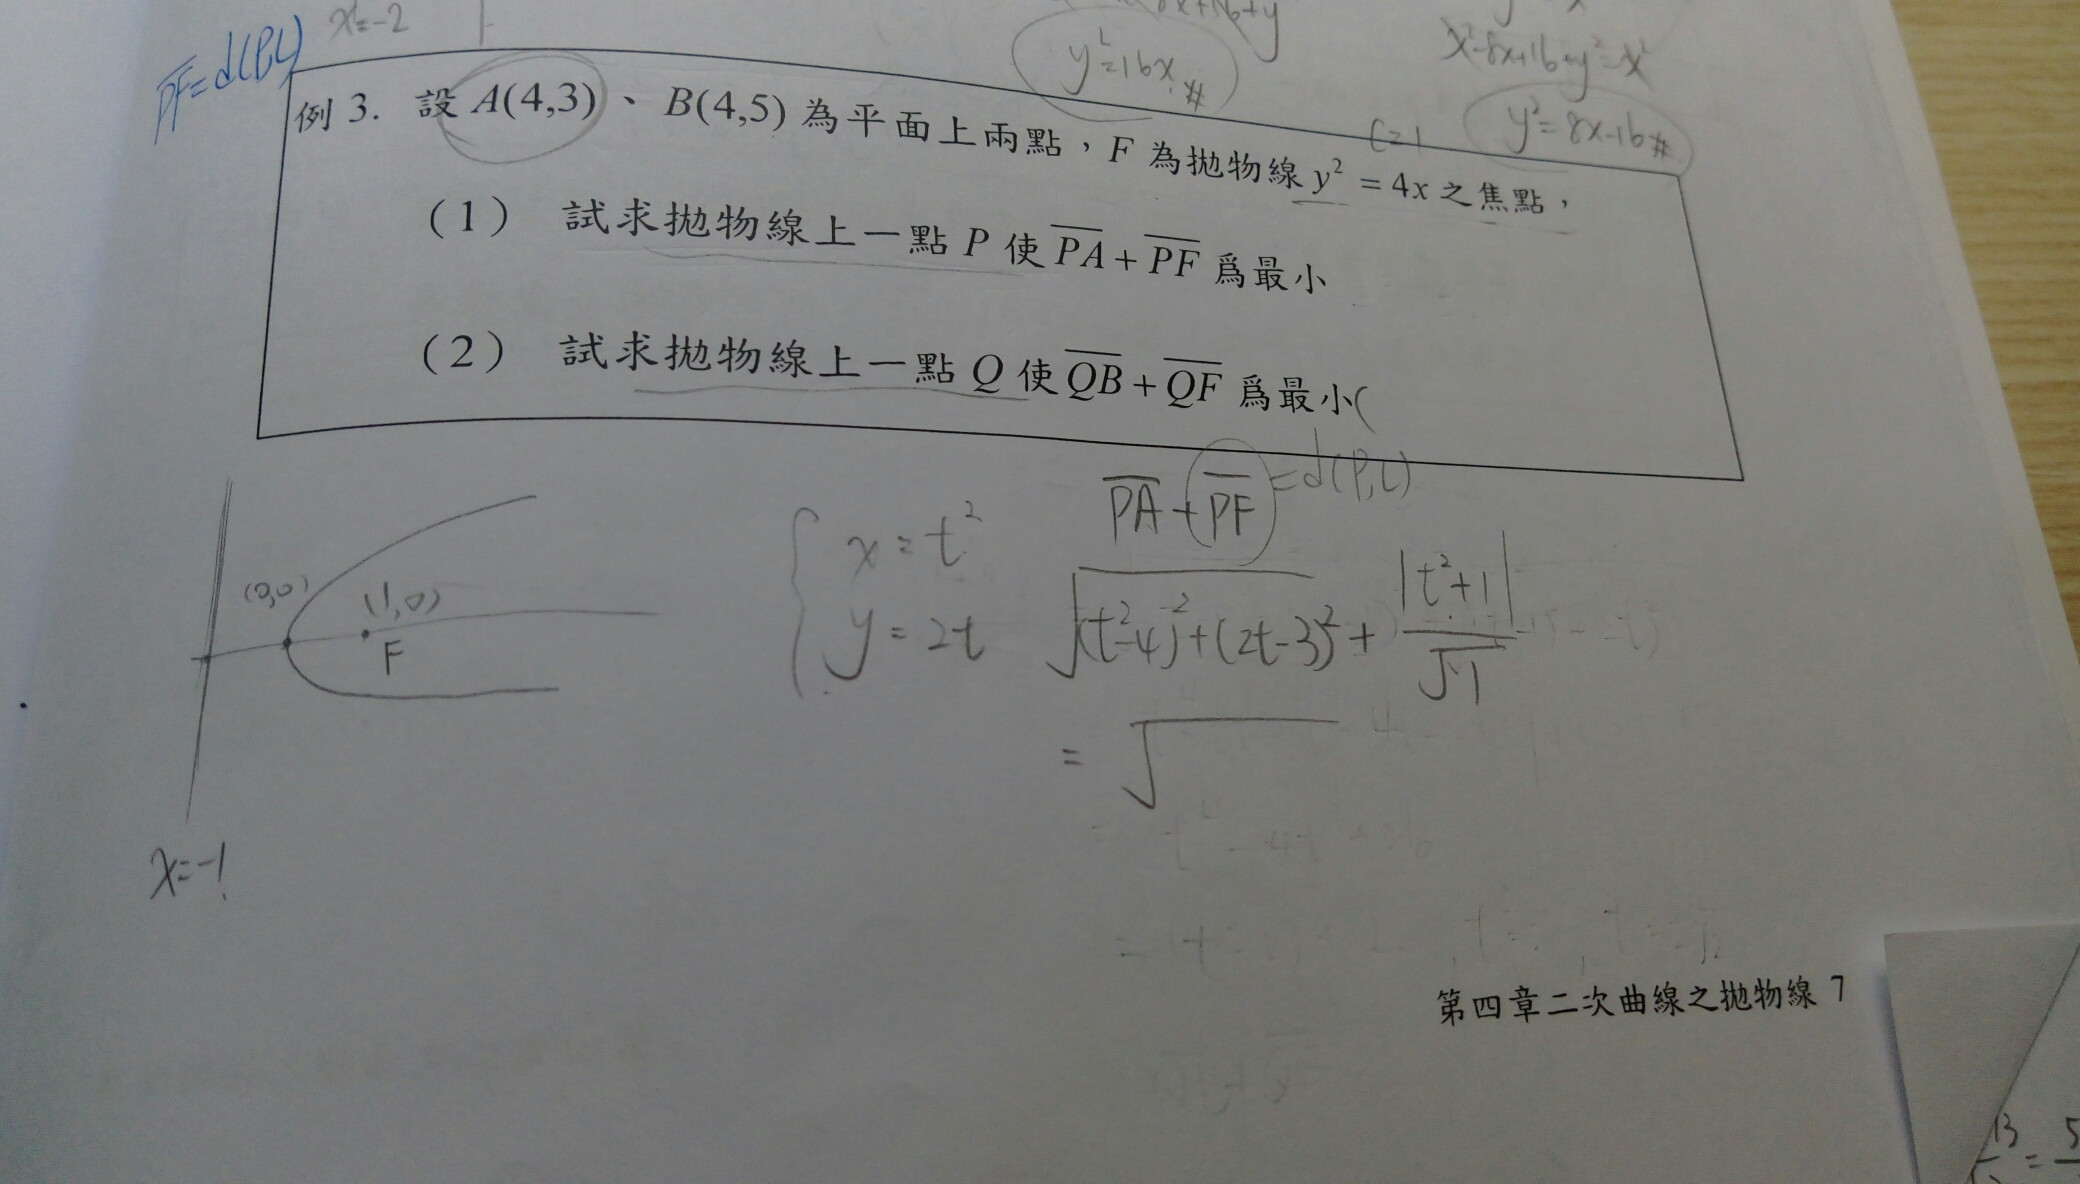 x=-2
PF=d(P,L)
y²=16x #
x²-8x+16+y²=x²
y²=8x-16 #
c=1
例 3. 設 A(4,3)、B(4,5) 為平面上兩點，F 為拋物線 y² = 4x 之焦點，
(1) 試求拋物線上一點 P 使 PA + PF 爲最小
(2) 試求拋物線上一點 Q 使 QB + QF 爲最小(
PA + PF = d(P,L)
x = t²
y = 2t
√(t²-4)²+(2t-3)² + |t²+1| / √1
= √
(0,0)
(1,0)
F
x=-1
第四章二次曲線之拋物線 7
13
= 5